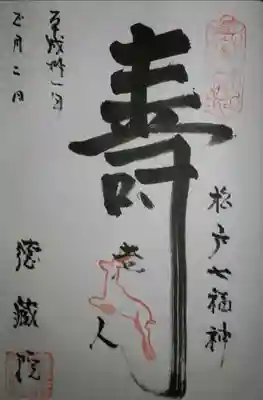 松戸七福神
寿
老人
平成卅一年
正月二日
徳蔵院